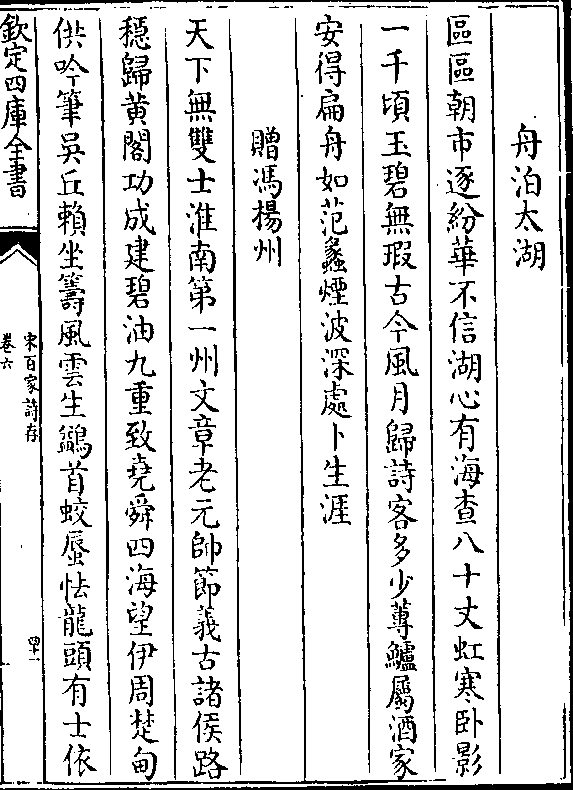 舟泊太湖
區區朝市逐紛華不信湖心有海查八十丈虹寒卧影
一千頃玉碧無瑕古今風月歸詩客多少蓴鱸屬酒家
安得扁舟如范蠡煙波深處卜生涯
贈馮楊州
天下無雙士淮南第一州文章老元帥節義古諸侯路
穩歸黃閣功成建碧油九重致堯舜四海望伊周楚甸
供吟筆吳丘賴坐籌風雲生鷁首蛟蜃怯龍頭有士依
欽定四庫全書
宋百家詩存
卷六